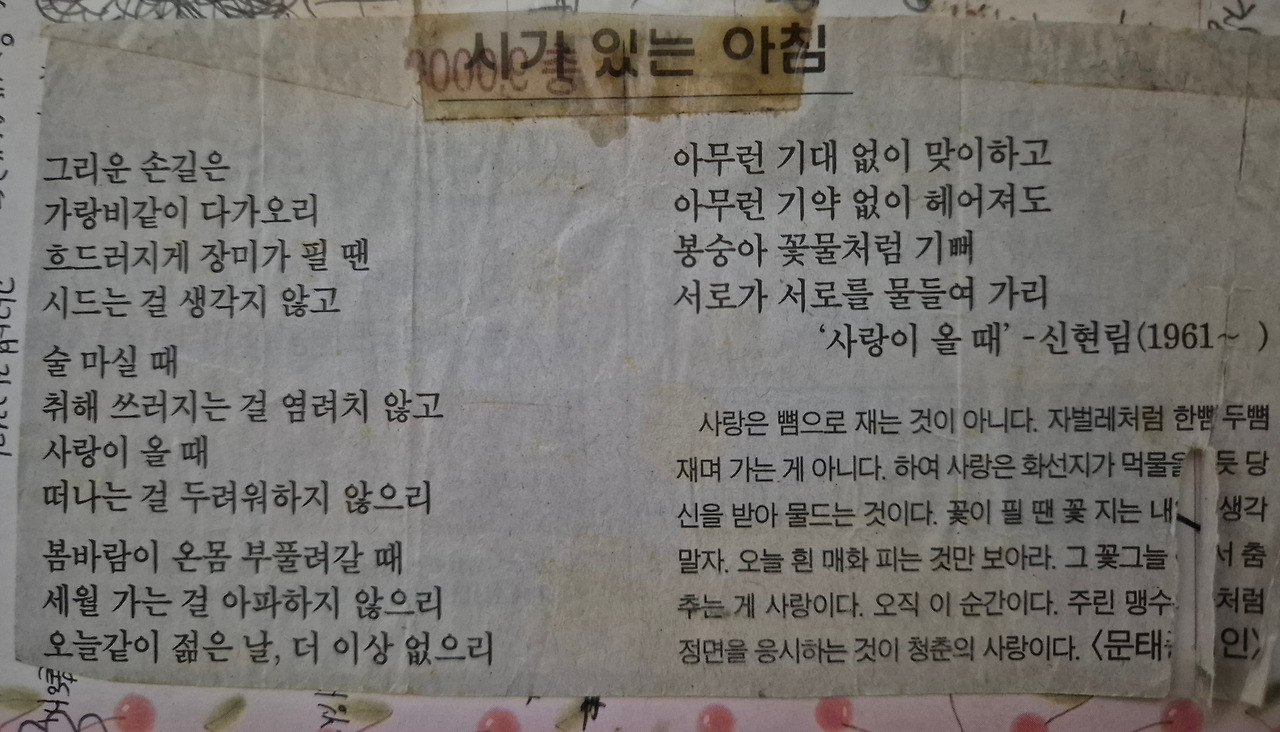 시가 있는 아침
그리운 손길은
가랑비같이 다가오리
흐드러지게 장미가 필 땐
시드는 걸 생각지 않고
술 마실 때
취해 쓰러지는 걸 염려치 않고
사랑이 올 때
떠나는 걸 두려워하지 않으리
봄바람이 온몸 부풀려갈 때
세월 가는 걸 아파하지 않으리
오늘같이 젊은 날, 더 이상 없으리
아무런 기대 없이 맞이하고
아무런 기약 없이 헤어져도
봉숭아 꽃물처럼 기뻐
서로가 서로를 물들여 가리
‘사랑이 올 때’ -신현림(1961~ )
사랑은 뼘으로 재는 것이 아니다. 자벌레처럼 한뼘 두뼘
재며 가는 게 아니다. 하여 사랑은 화선지가 먹물을 듯 당
신을 받아 물드는 것이다. 꽃이 필 땐 꽃 지는 생각
말자. 오늘 흰 매화 피는 것만 보아라. 그 꽃그늘 춤
추는 게 사랑이다. 오직 이 순간이다. 주린 맹수 처럼
정면을 응시하는 것이 청춘의 사랑이다. <문태 인>